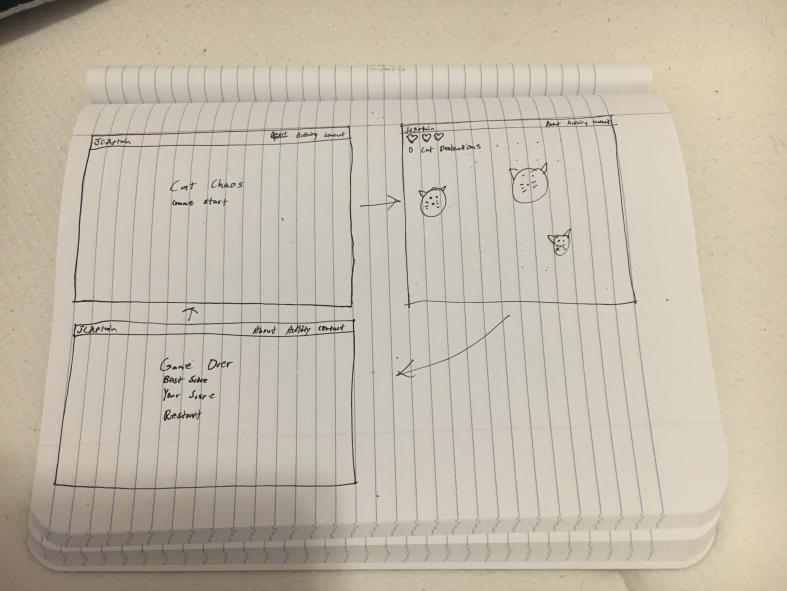 JCAptain About Activity Contact
Cat Chaos
Game Start
JCAptain About Activity Contact
0 Cat Destructions
JCAptain About Activity Contact
Game Over
Best Score
Your Score
Restart